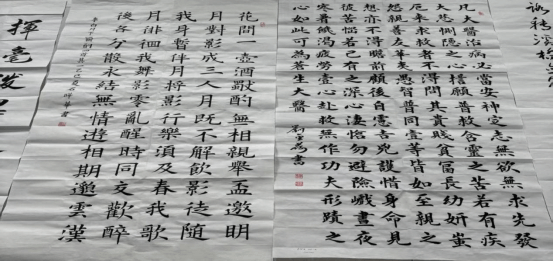 凡大醫治病必當安神定志無欲無求先發
大慈惻隱之心誓願普救含靈之苦若有疾
厄來求救者不得問其貴賤貧富長幼妍蚩
怨親善友華夷愚智普同壹等皆如至親之
想亦不得瞻前顧後自慮吉凶護惜身命見
彼苦惱若己有之深心悽愴勿避險巇晝夜
寒暑飢渴疲勞壹心赴救無作功夫形蹟之
心如此可為蒼生大醫
花間一壺酒獨酌無相親舉盃邀明
月對影成三人月既不解飲影徒隨
我身暫伴月將影行樂須及春我歌
月徘徊我舞影零亂醒時同交歡醉
後各分散永結無情遊相期邈雲漢
揮毫潑